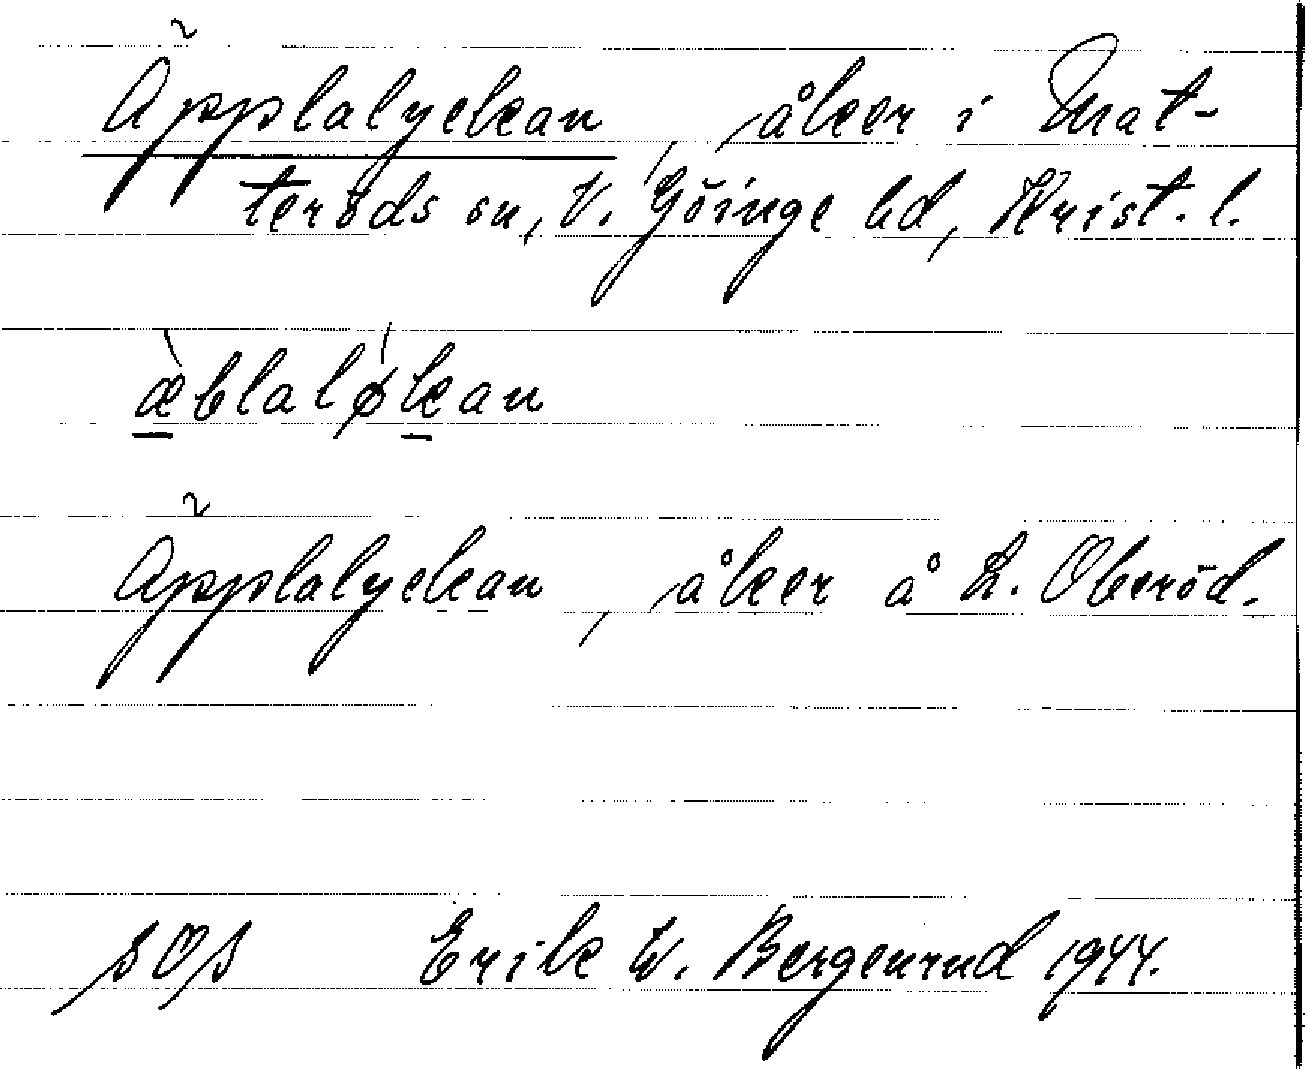 Äpplalyckan, åker i Mat-
teröds sn, V. Göinge hd, Krist. l.
æ̀blalǿkan
Äpplalyckan, åker å L. Oberöd.
SOS Erik W. Bergenrud 1944.